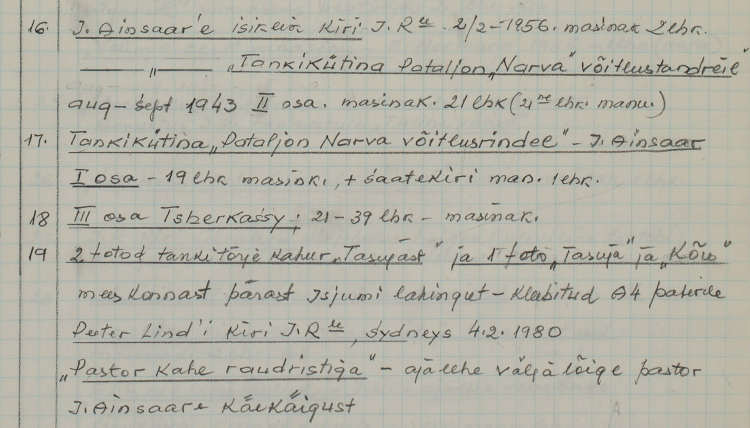 16. J. Ainsaar'e isiklik kiri J. R le. 2/2-1956. masinak 2 lhk.
——— " ——— „Tankikütina Pataljon „Narva" võitlustandreil"
aug-sept 1943 II osa. masinak. 21 lhk (21 ne lhk. manu.)
17. Tankikütina „Pataljon Narva võitlusrindel" - J. Ainsaar
I osa - 19 lhk masink., + saatekiri man. 1 lhk.
18 III osa Tsherkassy; 21-39 lhk - masinak.
19 2 fotod tankitõrje kahur „Tasujast" ja 1 foto „Tasuja" ja „Kõu"
meeskonnast pärast Isjumi lahingut - kleebitud A4 paberile
Peeter Lind'i kiri J. R le, Sydneys 4.2.1980
„Pastor kahe raudristiga" - ajalehe väljalõige pastor
J. Ainsaare käekäigust